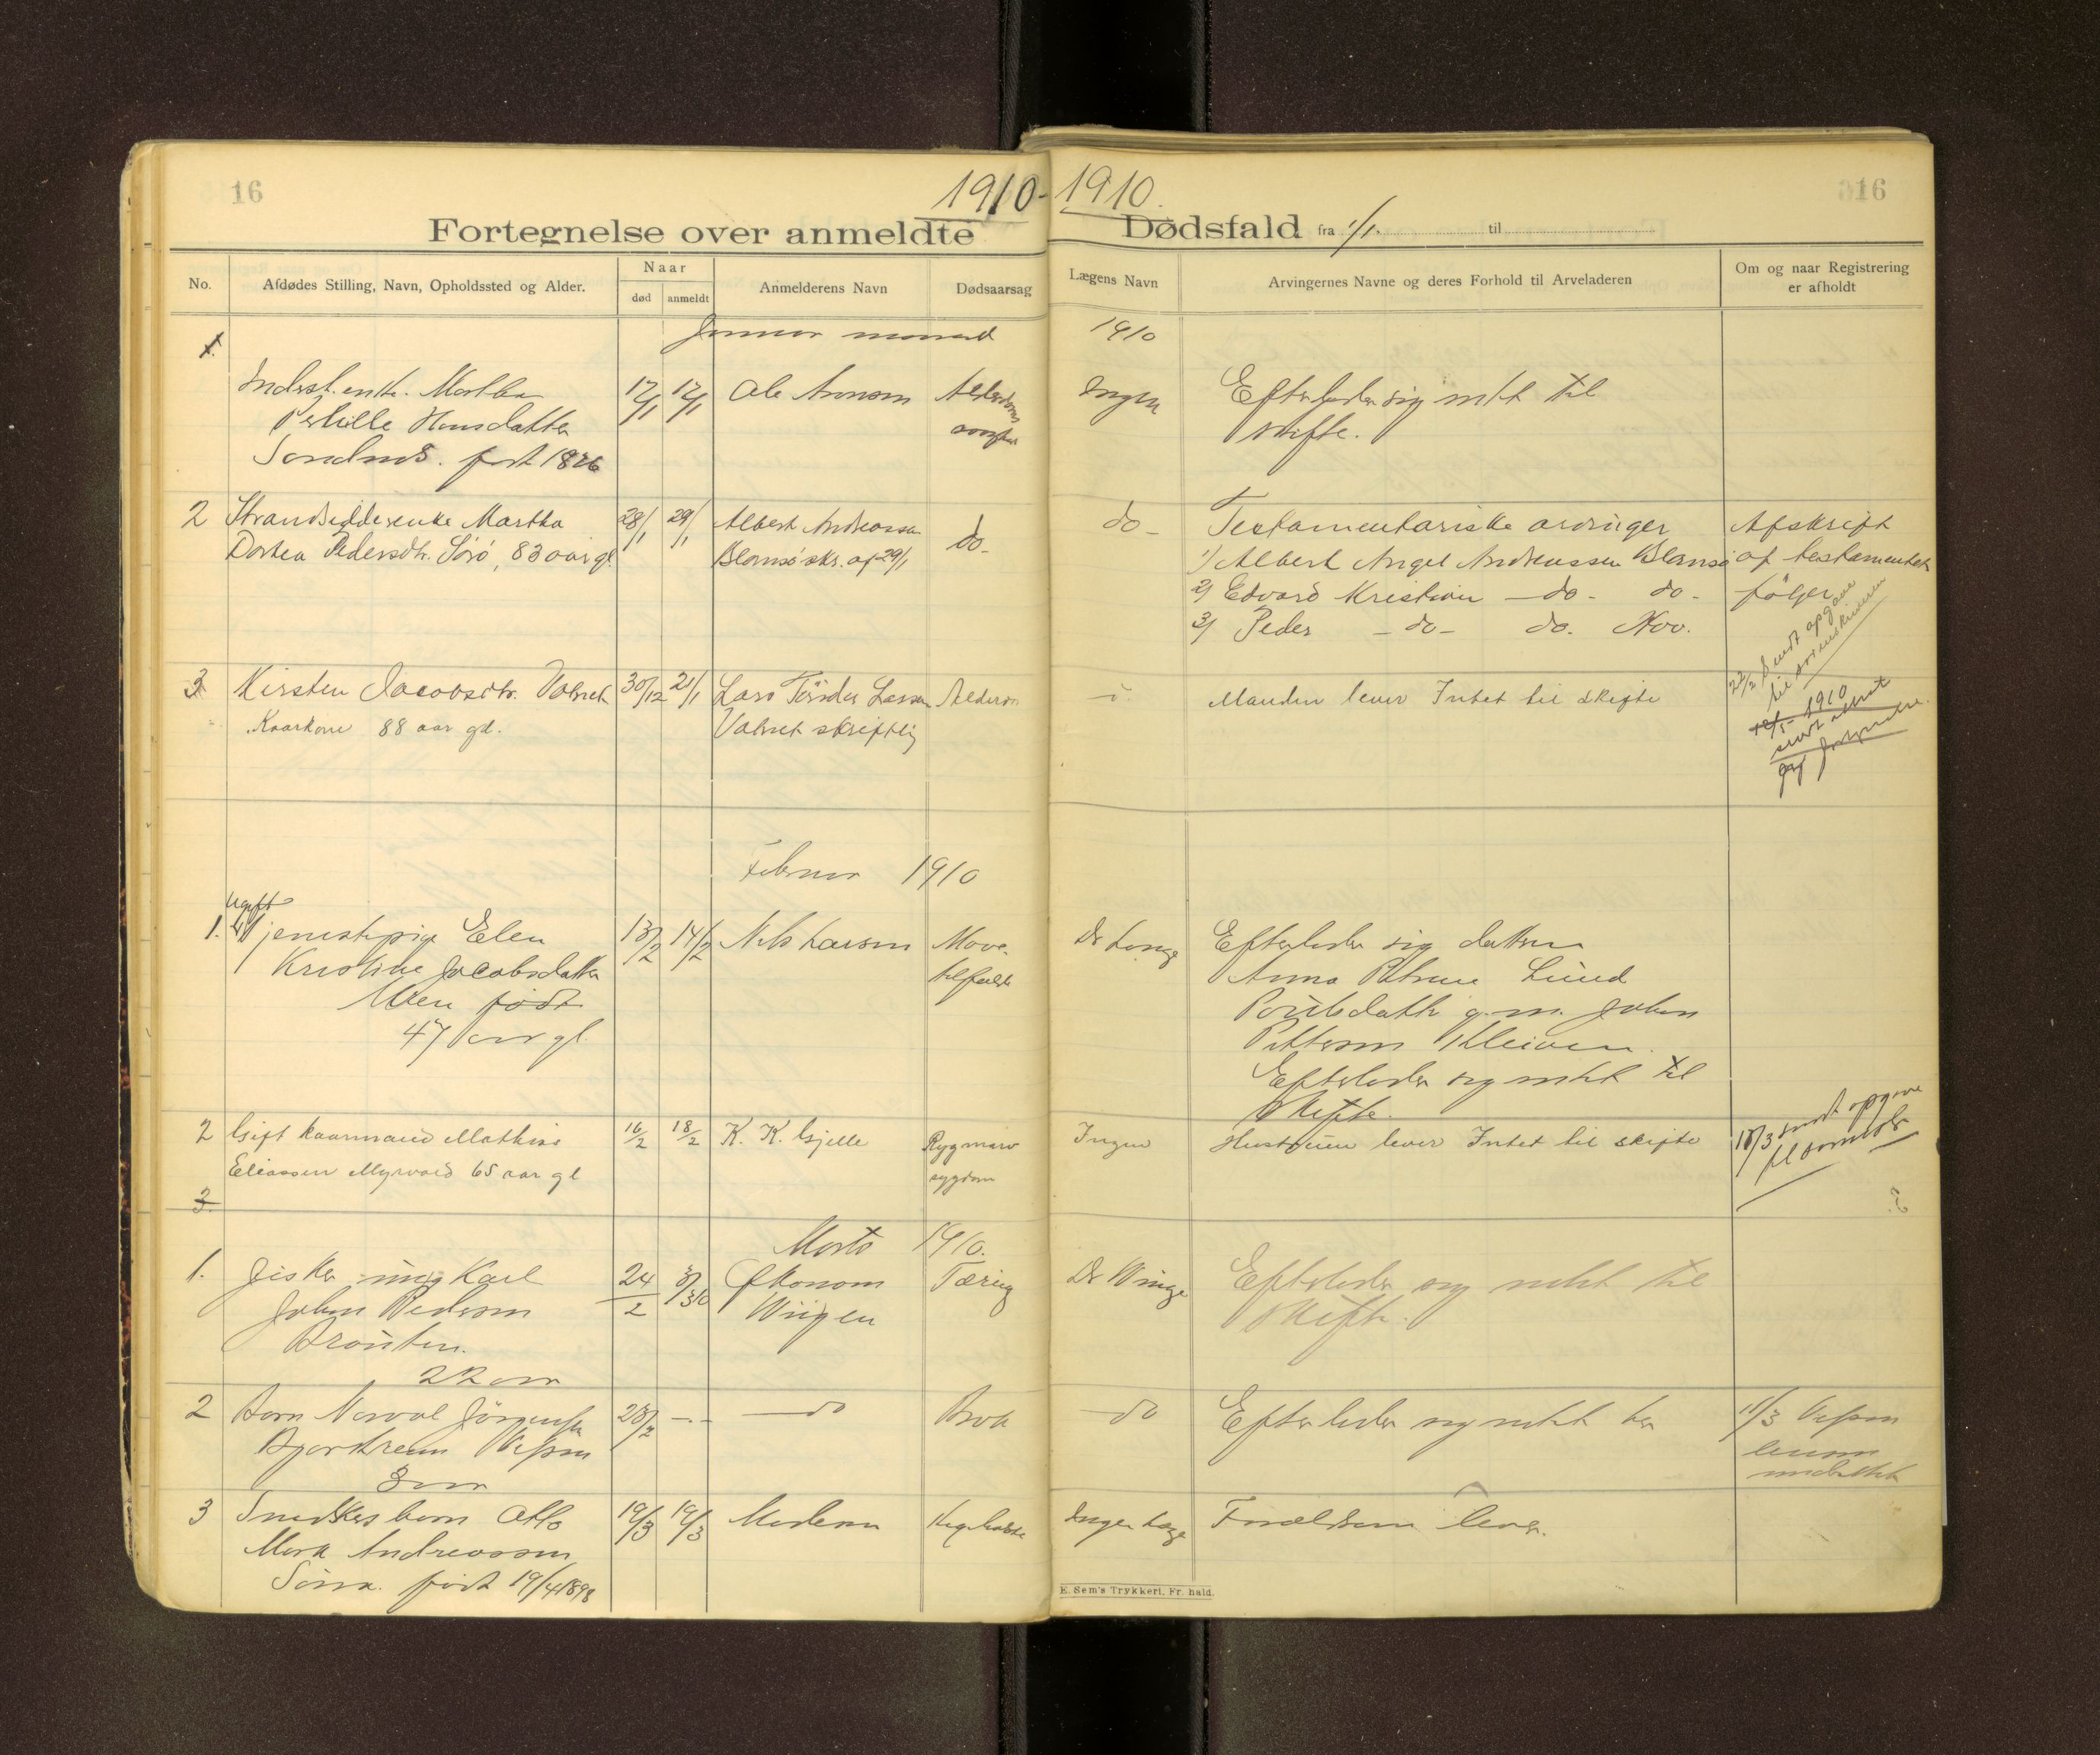 16
1910-
1910.
316
Fortegnelse over anmeldte
Dødsfald fra 1/1. til
No.
Afdødes Stilling, Navn, Opholdssted og Alder.
Naar
død
anmeldt
Anmelderens Navn
Dødsaarsag
Lægens Navn
Arvingernes Navne og deres Forhold til Arveladeren
Om og naar Registrering
er afholdt
Januar maaned
1910
1.
Inderst. enke. Martha
17/1 17/1 Ole Aronsen Alderdoms
Ingen
Efterlader sig intet til
Pernille Hansdatter
skifte.
født 1826
2 Strandsidderenke Martha
28/1 29/1 Albert Andreassen
do-
do-
Testamentariske arvinger
Afskrift
Dortea Pedersdtr. Sörö, 83 aar gl.
Blomsö skr. af 29/1
1/ Albert Angel Andreassen Blomsö
af testamentet
2/ Edvard Kristian -do- do-
følger
3/ Peder -do- do. Nov.
22/2 Sendt opgave
til sorenskriveren
3 Kirsten Jacobsdtr. Valnet
30/12 21/1 Lars Teoder Larsen
Alderdom
Manden lever Intet til skifte
Kaarkone 88 aar gl.
Valnet skriftlig
1910
Februar 1910
ugift
1. Tjenestepige Elen
13/2 14/2 Nils Larsen Mave-
Dr Lange
Efterlader sig datteren
Kristine Jacobsdatter
tilfælde
Anna Petrine Lund
født
Poulsdatter g. m. Johan
47 aar gl.
Pettersen Kleiven.
Efterlader sig intet til
Skifte.
2 Gift kaarmand Mathias
16/2 18/2 K. K. Gjelle
Rygmarv
Ingen
Hustruen lever Intet til skifte
18/3 sendt opgave
Eliassen Myrvold 65 aar gl
sygdom
3.
Marts 1910.
1. Fisker ung Karl
24/2 3/3 10 Økonom
Tæring
Dr Winge
Efterlader sig intet til
Johan Pedersen
Wiigen
Skifte.
22 aar
2 Barn
28/2 -.- do
Brok
do
Efterlader sig intet her
11/3 Vefsen
Vefsen
lensm
3 aar
underrettet
3 Snedkerbarn Otto
19/3 19/3 Moderen
Ingen Læge
Forældrene lever.
Mork Andreassen
født 19/4 1898
E. Sem's Trykkeri, Fr. hald.